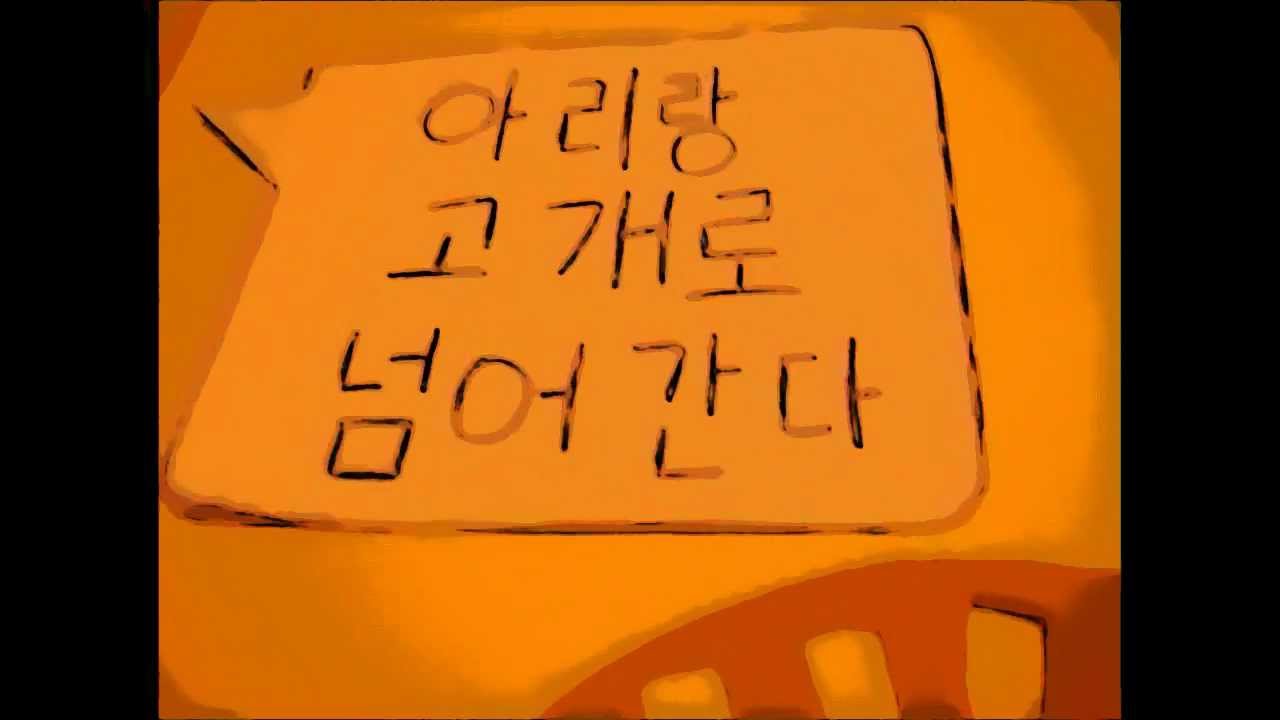 아리랑
고개로
넘어간다